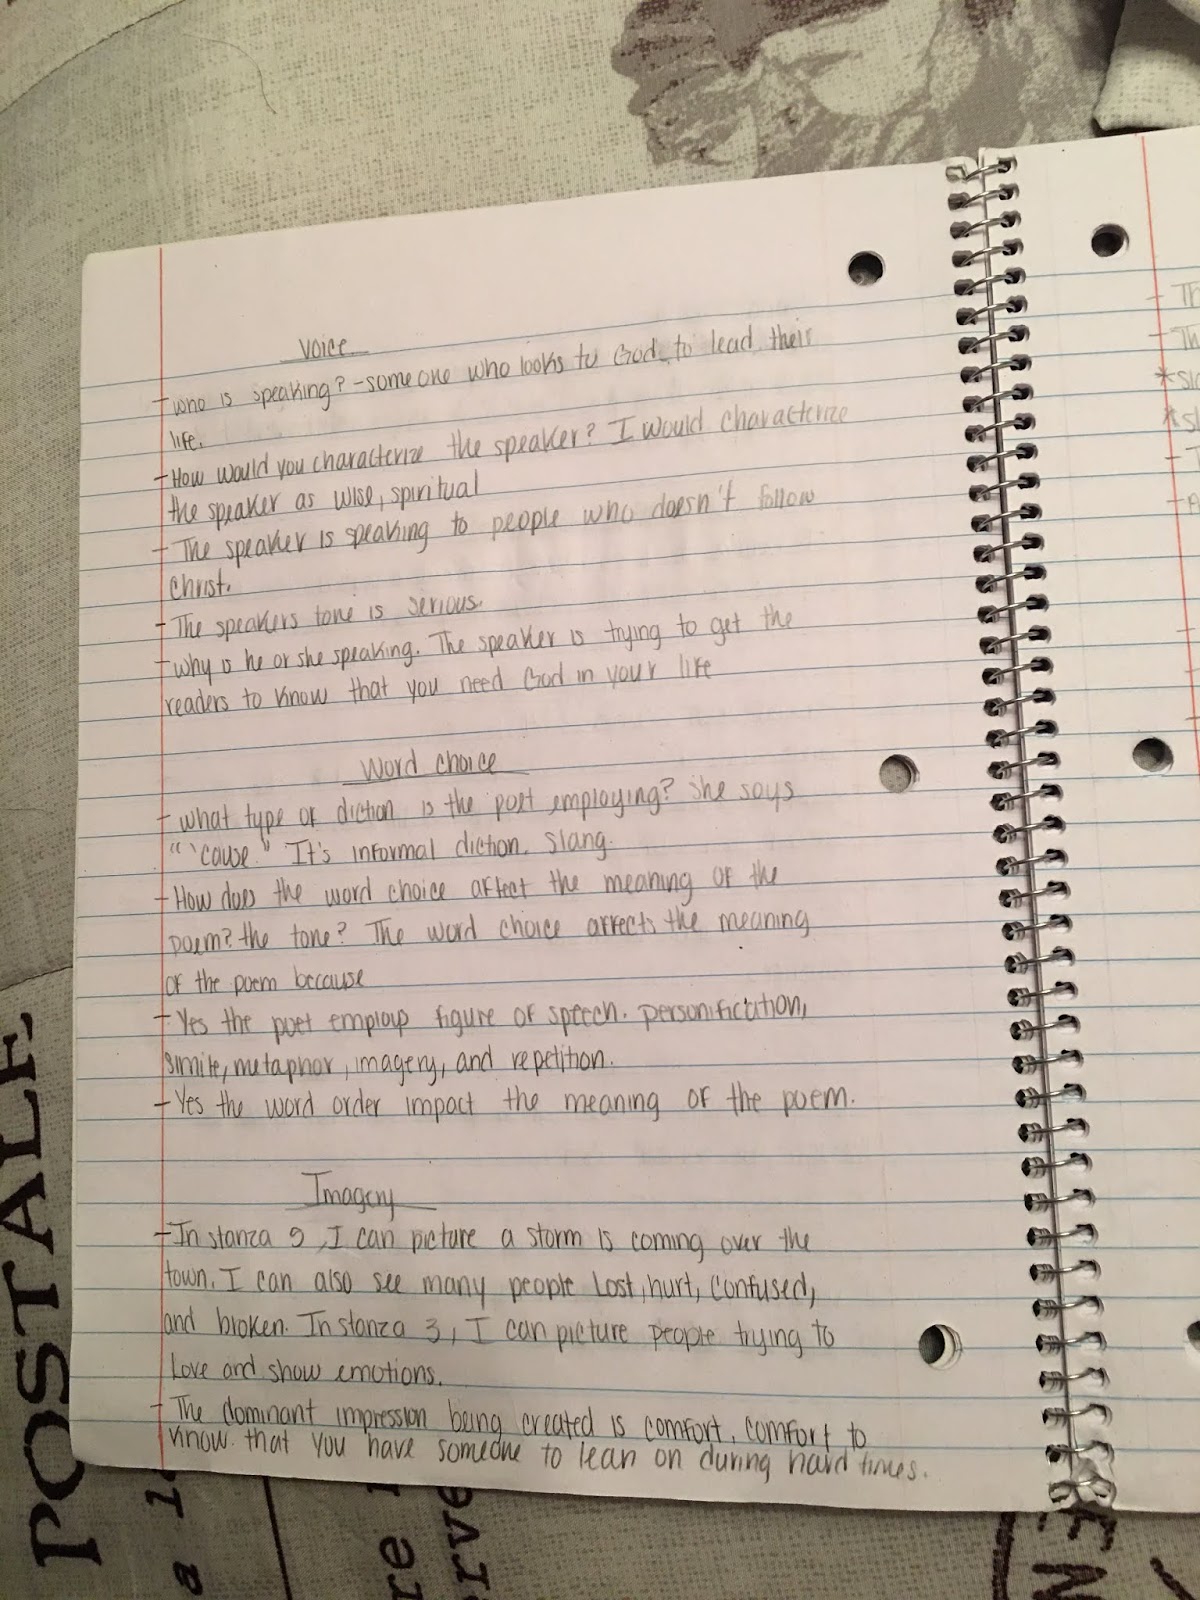 Voice
- who is speaking? - someone who looks to God to lead their
life.
- How would you characterize the speaker? I would characterize
the speaker as wise, spiritual
- The speaker is speaking to people who doesn't follow
Christ.
- The speakers tone is serious.
- Why is he or she speaking. The speaker is trying to get the
readers to know that you need God in your life
Word choice
- what type of diction is the poet employing? She says
" 'cause." It's informal diction. Slang.
- How does the word choice affect the meaning of the
poem? the tone? The word choice affects the meaning
of the poem because
- Yes the poet employs figure of speech. personification,
simile, metaphor, imagery, and repetition.
- Yes the word order impact the meaning of the poem.
Imagery
- In stanza I can picture a storm is coming over the
town. I can also see many people Lost, hurt, confused,
and broken. In stanza 3, I can picture people trying to
Love and show emotions.
- The dominant impression being created is comfort. comfort to
know that you have someone to lean on during hard times.
- Th
- Th
POSTALE